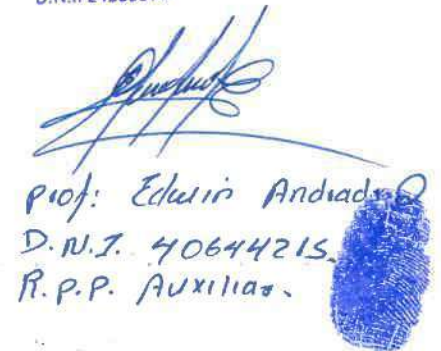 prof: Edwin Andrade
D.N.I. 40644215.
R.P.P. Auxiliar.